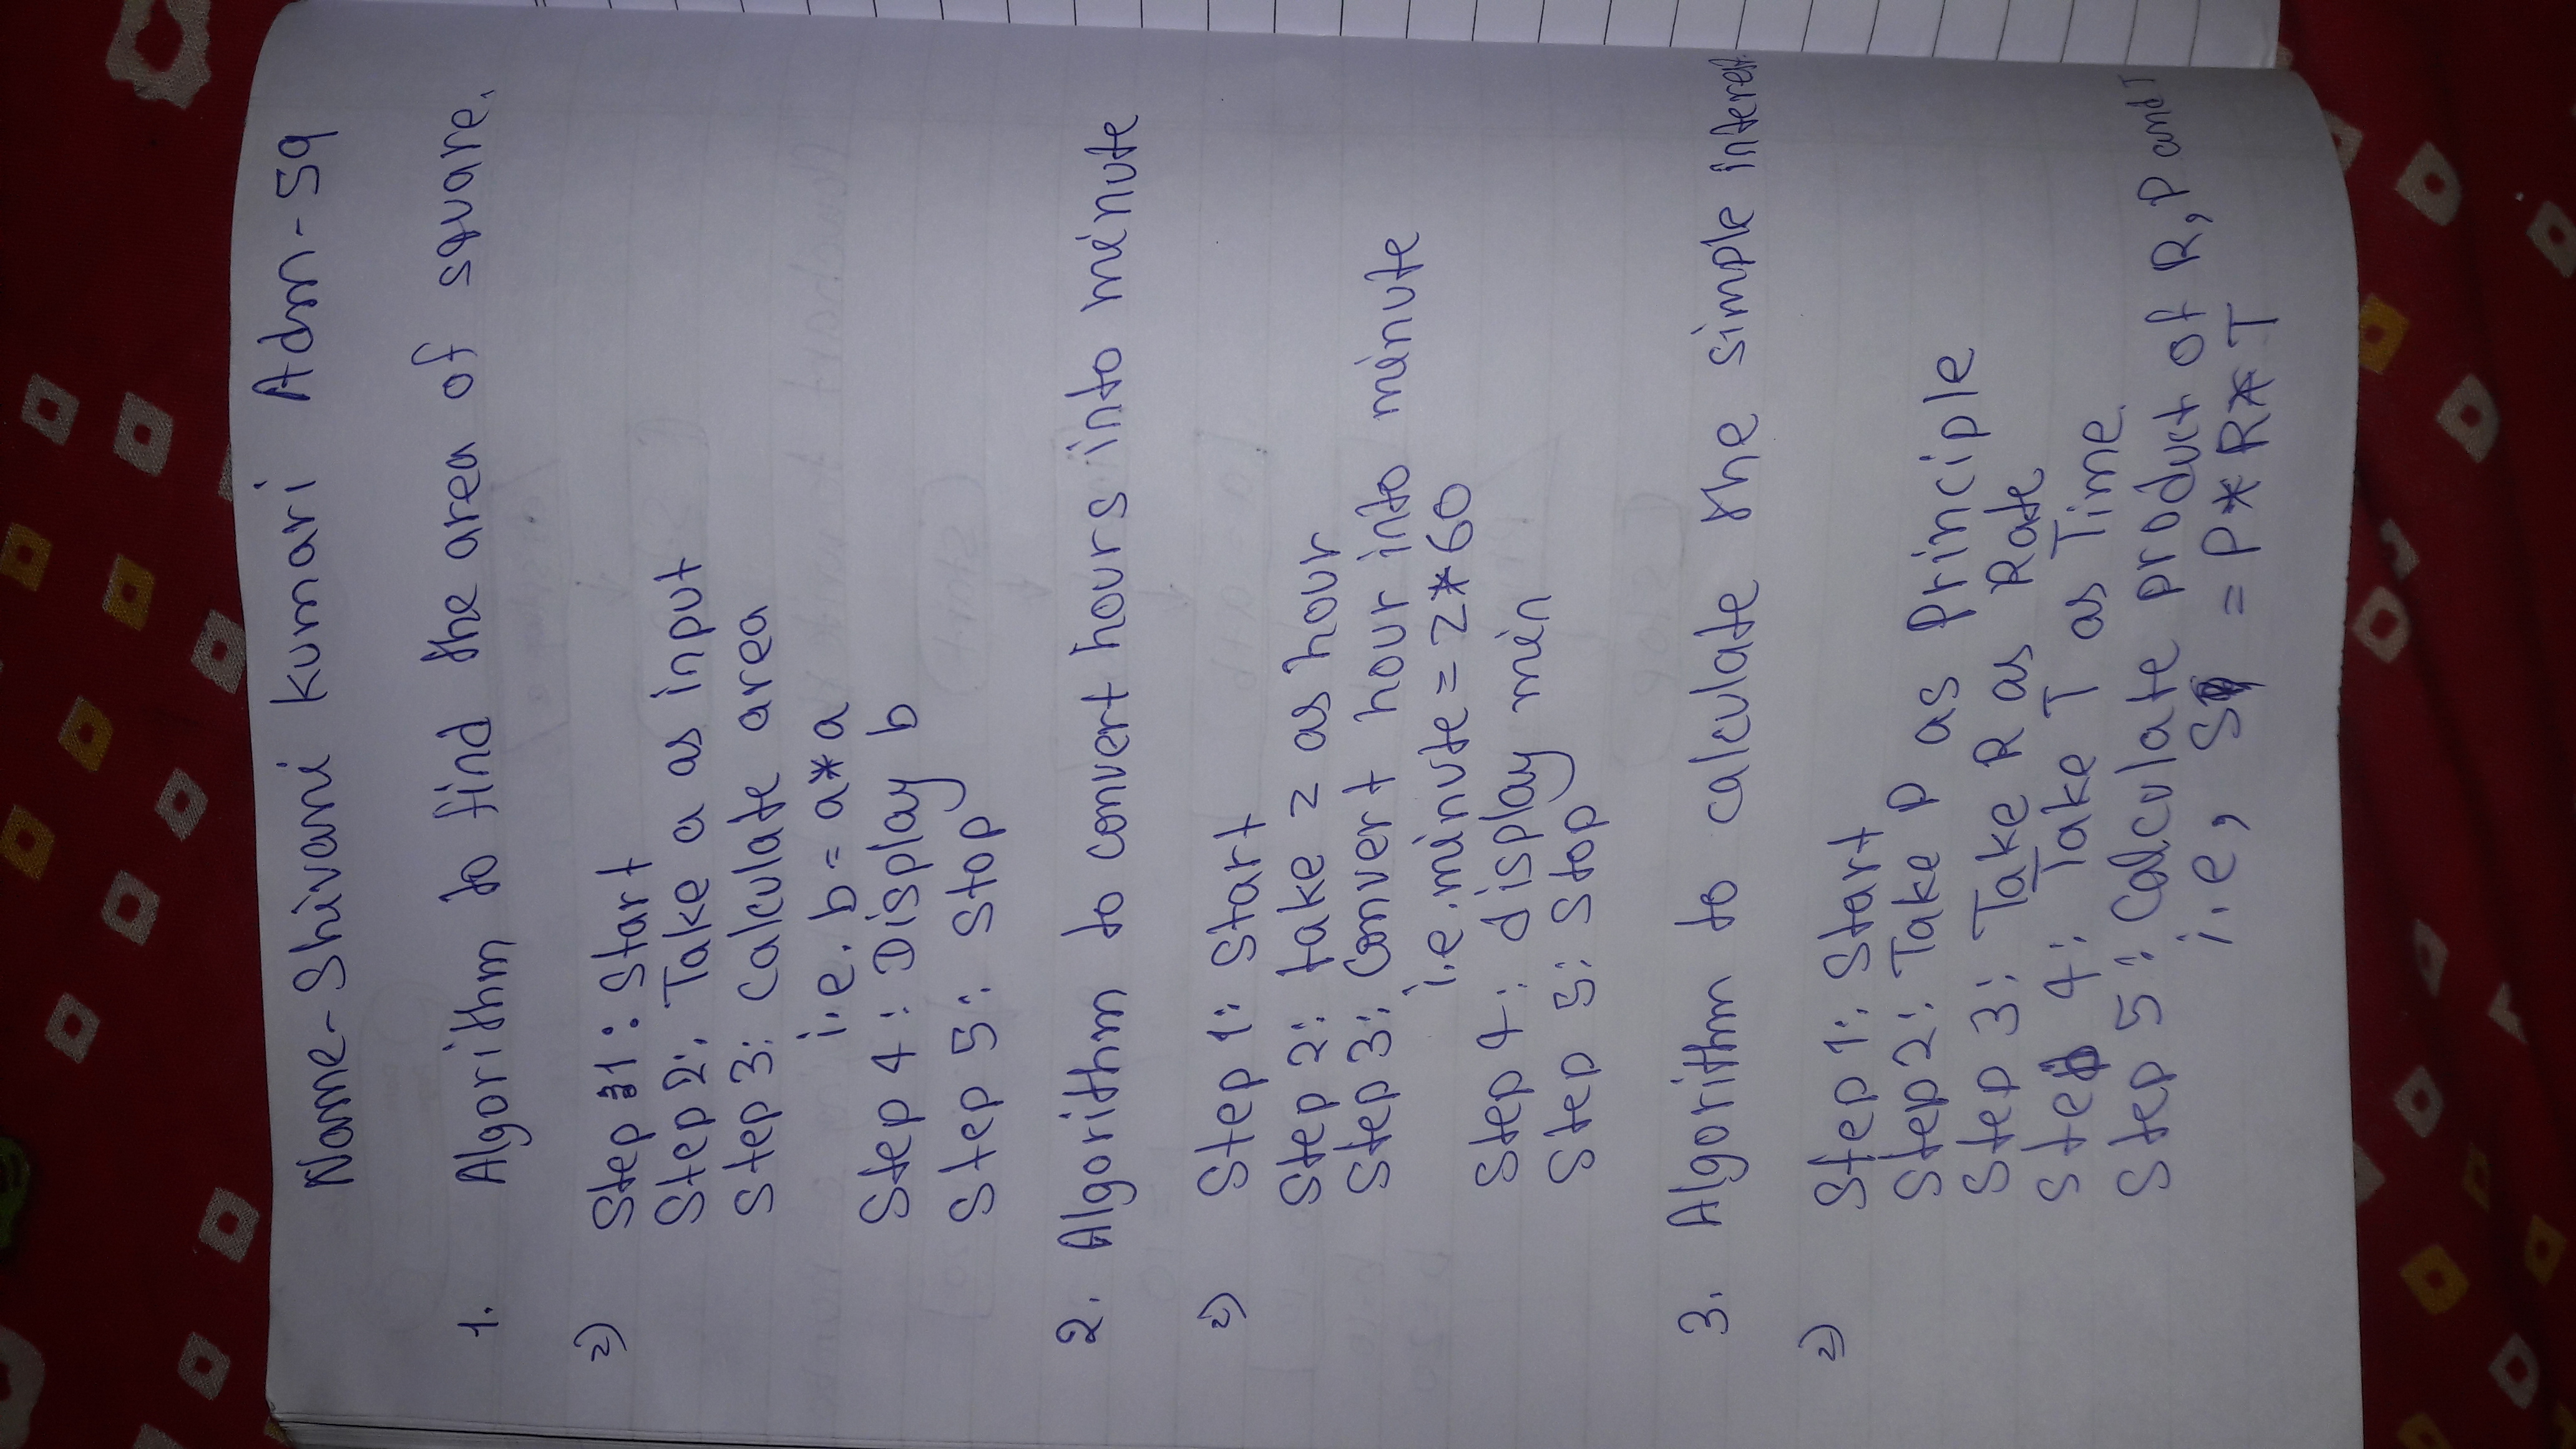 Name-Shivani Kumari Adm-59
1. Algorithm to find the area of square.
Step 1: Start
Step 2: Take a as input
Step 3: Calculate area
i.e. b = a*a
Step 4: Display b
Step 5: Stop
2. Algorithm to convert hours into minute
Step 1: Start
Step 2: take z as hour
Step 3: Convert hour into minute
i.e. minute = z*60
Step 4: display min
Step 5: Stop
3. Algorithm to calculate the simple interest
Step 1: Start
Step 2: Take P as Principle
Step 3: Take R as Rate
Step 4: Take T as Time.
Step 5: Calculate product of R, P and T
i.e, = P*R*T